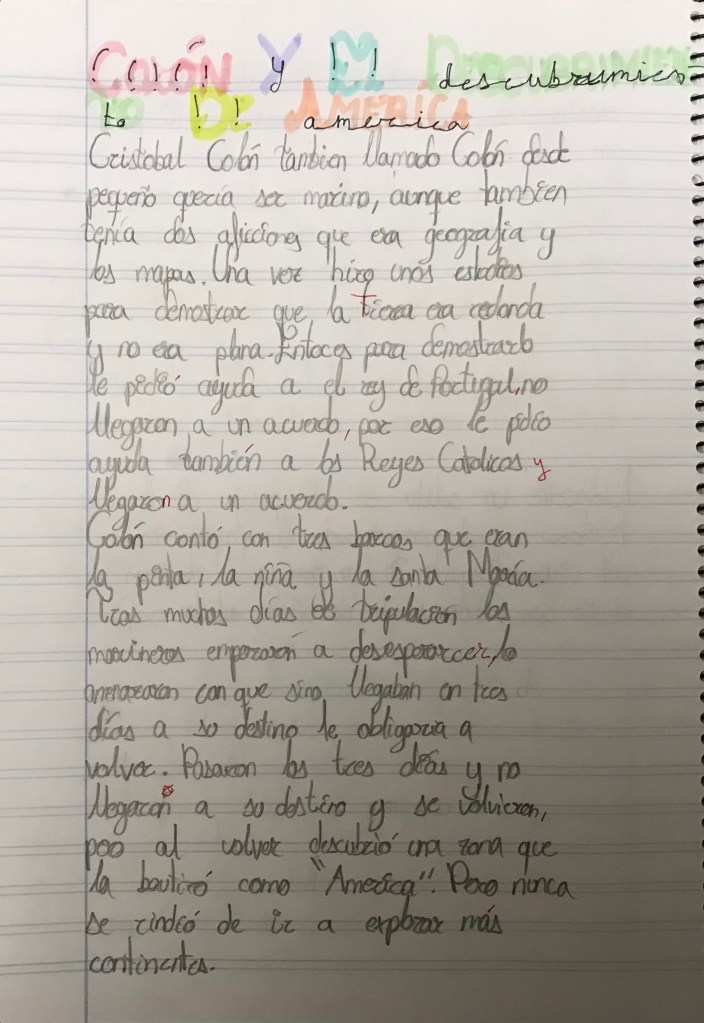 COLÓN Y El DESCUBRIMIEN
TO DE AMÉRICA
y descubrimien
to america
Cristobal Colón tambien llamado Colón desde
pequeño quería ser marino, aunque tambien
tenía dos aficciones que era geografía y
los mapas. Una vez hizo unos estudios
para demostrar que la Tierra era redonda
y no era plana. Entoces para demostrarlo
le pidió ayuda a el rey de Portugal, no
llegaron a un acuerdo, por eso le pidio
ayuda también a los Reyes Catolicos y
llegaron a un acuerdo.
Colón contó con tres barcos que eran
la pinta, la niña y la santa María.
Tras muchos días de tripulación los
marineros empezaron a desesperarcer, lo
amenazaron con que sino llegaban en tres
días a so destino le obligaria a
volver. Pasaron los tres días y no
llegaron a su destino y se volvieron,
pero al volver descubrió una zona que
la bautizó como "America". Pero nunca
se rindió de ir a explorar más
continentes.